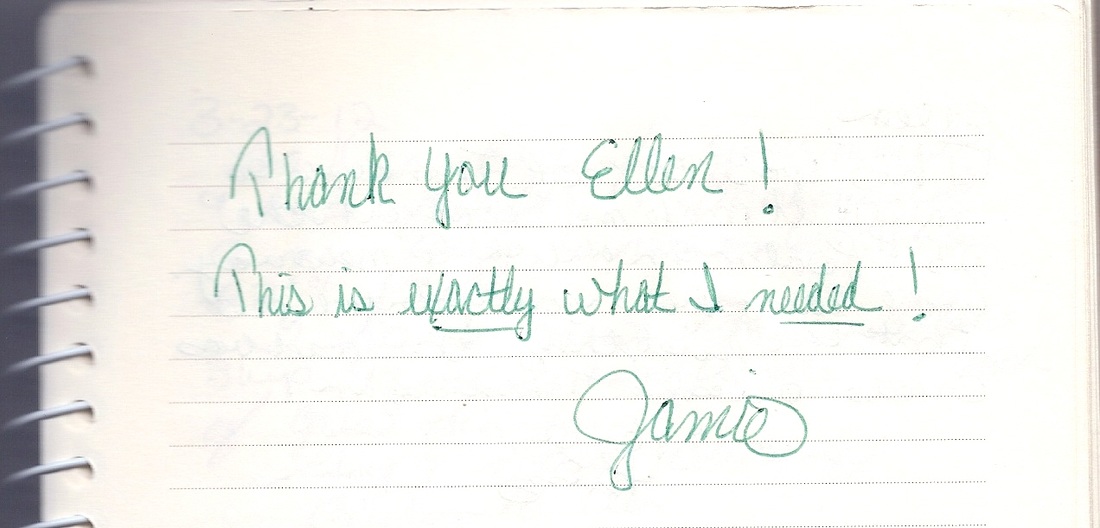 Thank you Ellen!
This is exactly what I needed!
Jamie